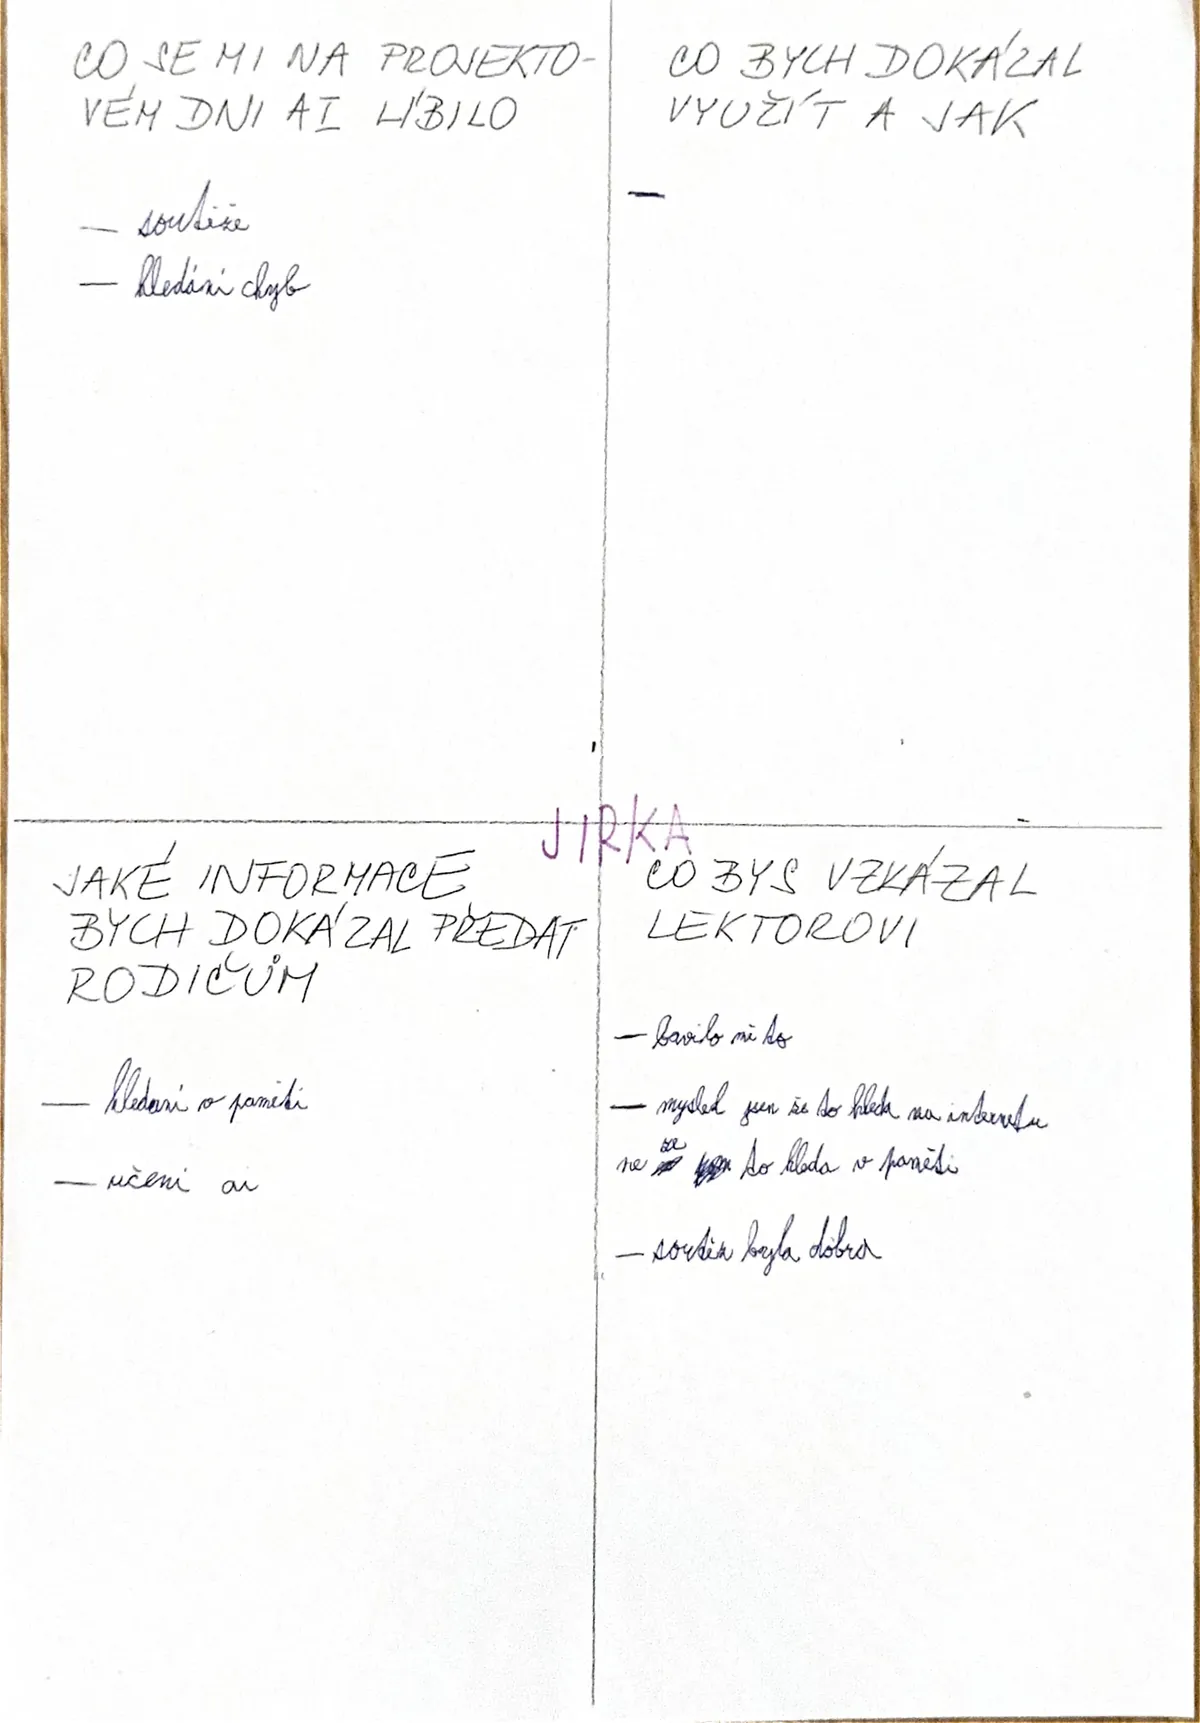 CO SE MI NA PROJEKTO-
VÉM DNI AI LÍBILO
— soutěže
— hledání chyb
CO BYCH DOKÁZAL
VYUŽÍT A JAK
—
JIRKA
JAKÉ INFORMACE
BYCH DOKÁZAL PŘEDAT
RODIČŮM
— hledani v paměti
— učeni ai
CO BYS VZKÁZAL
LEKTOROVI
— bavilo mě to
— myslel jsen že to hleda na internetu
ne že to hleda v paměti
— soutěž byla dobra